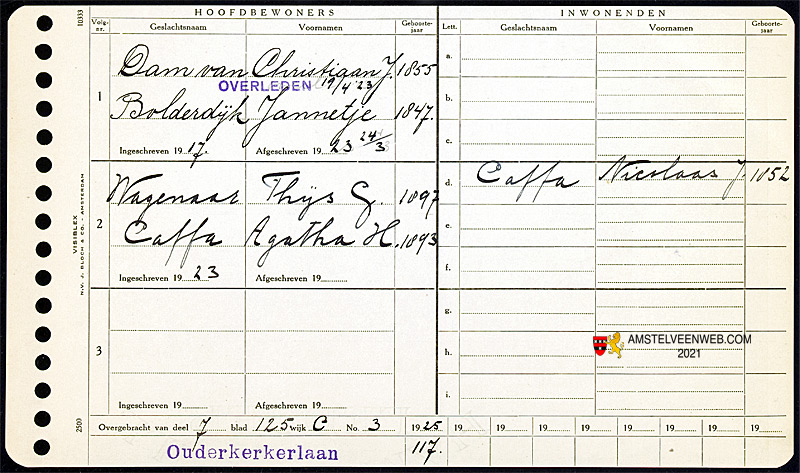 HOOFDBEWONERS INWONENDEN
10333 Volg-nr. Geslachtsnaam Voornamen Geboorte-jaar Lett. Geslachtsnaam Voornamen Geboorte-jaar
1 Dam van Christiaan J. 1855 a.
OVERLEDEN 19/4 23
Bolderdijk Jannetje 1847. b.
Ingeschreven 19 17. Afgeschreven 19 23 24/3 c.
2 Wagenaar Thijs G. 1897 d. Caffa Nicolaas J. 1852
Caffa Agatha H. 1893 e.
Ingeschreven 19 23 Afgeschreven 19 f.
VISIBLEX
N.V. J. BLOCH & CO. - AMSTERDAM
3 g.
h.
AMSTELVEENWEB.COM
2021
Ingeschreven 19 Afgeschreven 19 i.
2503 Overgebracht van deel 7 blad 125 wijk C No. 3 1925 19 19 19 19 19 19 19 19 19
Ouderkerkerlaan 117.